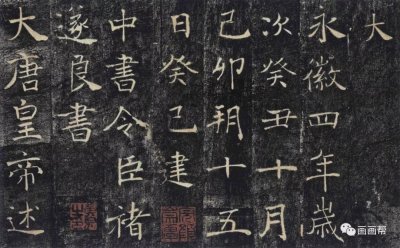 大
永徽四年歲
次癸丑十月
己卯朔十五
日癸巳建
中書令臣褚
遂良書
大唐皇帝述
画画帮